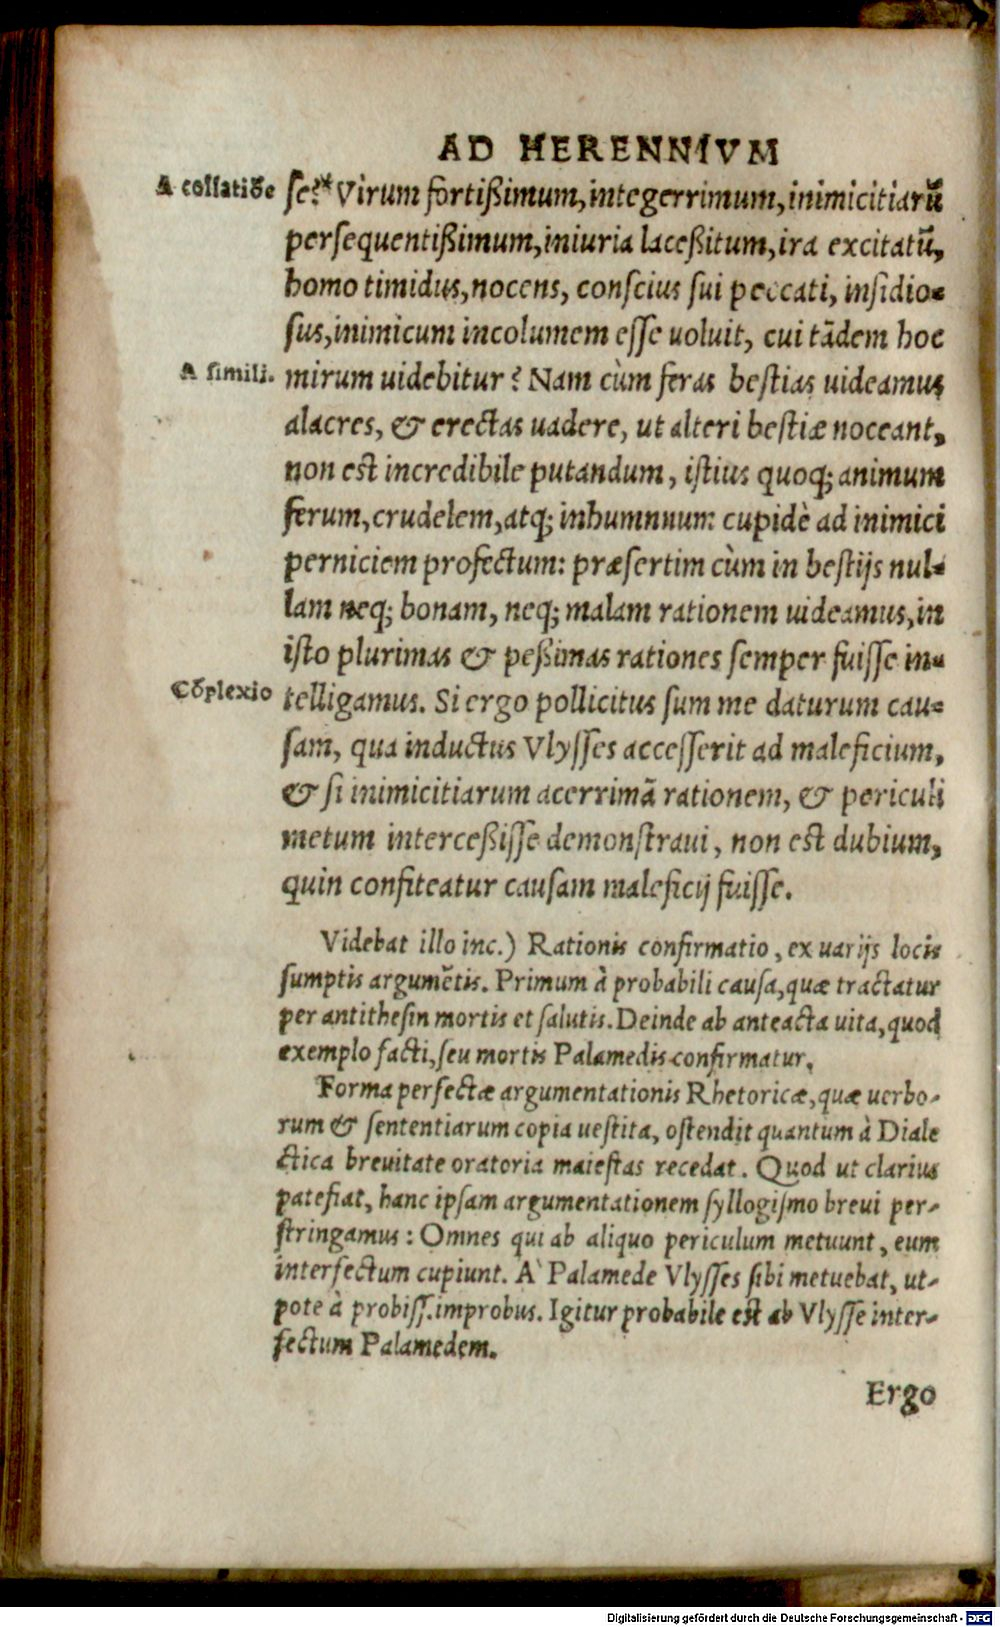 AD HERENNIVM
A collatiōe
se?* Virum fortißimum, integerrimum, inimicitiarū
persequentißimum, iniuria laceßitum, ira excitatū,
homo timidus, nocens, conscius sui peccati, insidio-
sus, inimicum incolumem esse uoluit, cui tādem hoc
A simili.
mirum uidebitur? Nam cùm feras bestias uideamus
alacres, & erectas uadere, ut alteri bestiæ noceant,
non est incredibile putandum, istius quoq; animum
ferum, crudelem, atq; inhumnum: cupidè ad inimici
perniciem profectum: præsertim cùm in bestijs nul-
lam neq; bonam, neq; malam rationem uideamus, in
isto plurimas & peßimas rationes semper fuisse in-
Cōplexio
telligamus. Si ergo pollicitus sum me daturum cau-
sam, qua inductus Vlysses accesserit ad maleficium,
& si inimicitiarum acerrimā rationem, & periculi
metum interceßisse demonstraui, non est dubium,
quin confiteatur causam maleficij fuisse.
Videbat illo inc.) Rationis confirmatio, ex uarijs locis
sumptis argumētis. Primum à probabili causa, quæ tractatur
per antithesin mortis et salutis. Deinde ab anteacta uita, quod
exemplo facti, seu mortis Palamedis confirmatur.
Forma perfectæ argumentationis Rhetoricæ, quæ uerbo-
rum & sententiarum copia uestita, ostendit quantum à Diale
ctica breuitate oratoria maiestas recedat. Quod ut clarius
patefiat, hanc ipsam argumentationem syllogismo breui per-
stringamus: Omnes qui ab aliquo periculum metuunt, eum
interfectum cupiunt. A` Palamede Vlysses sibi metuebat, ut-
pote à probiss. improbus. Igitur probabile est ab Vlysse inter-
fectum Palamedem.
Ergo
Digitalisierung gefördert durch die Deutsche Forschungsgemeinschaft - DFG